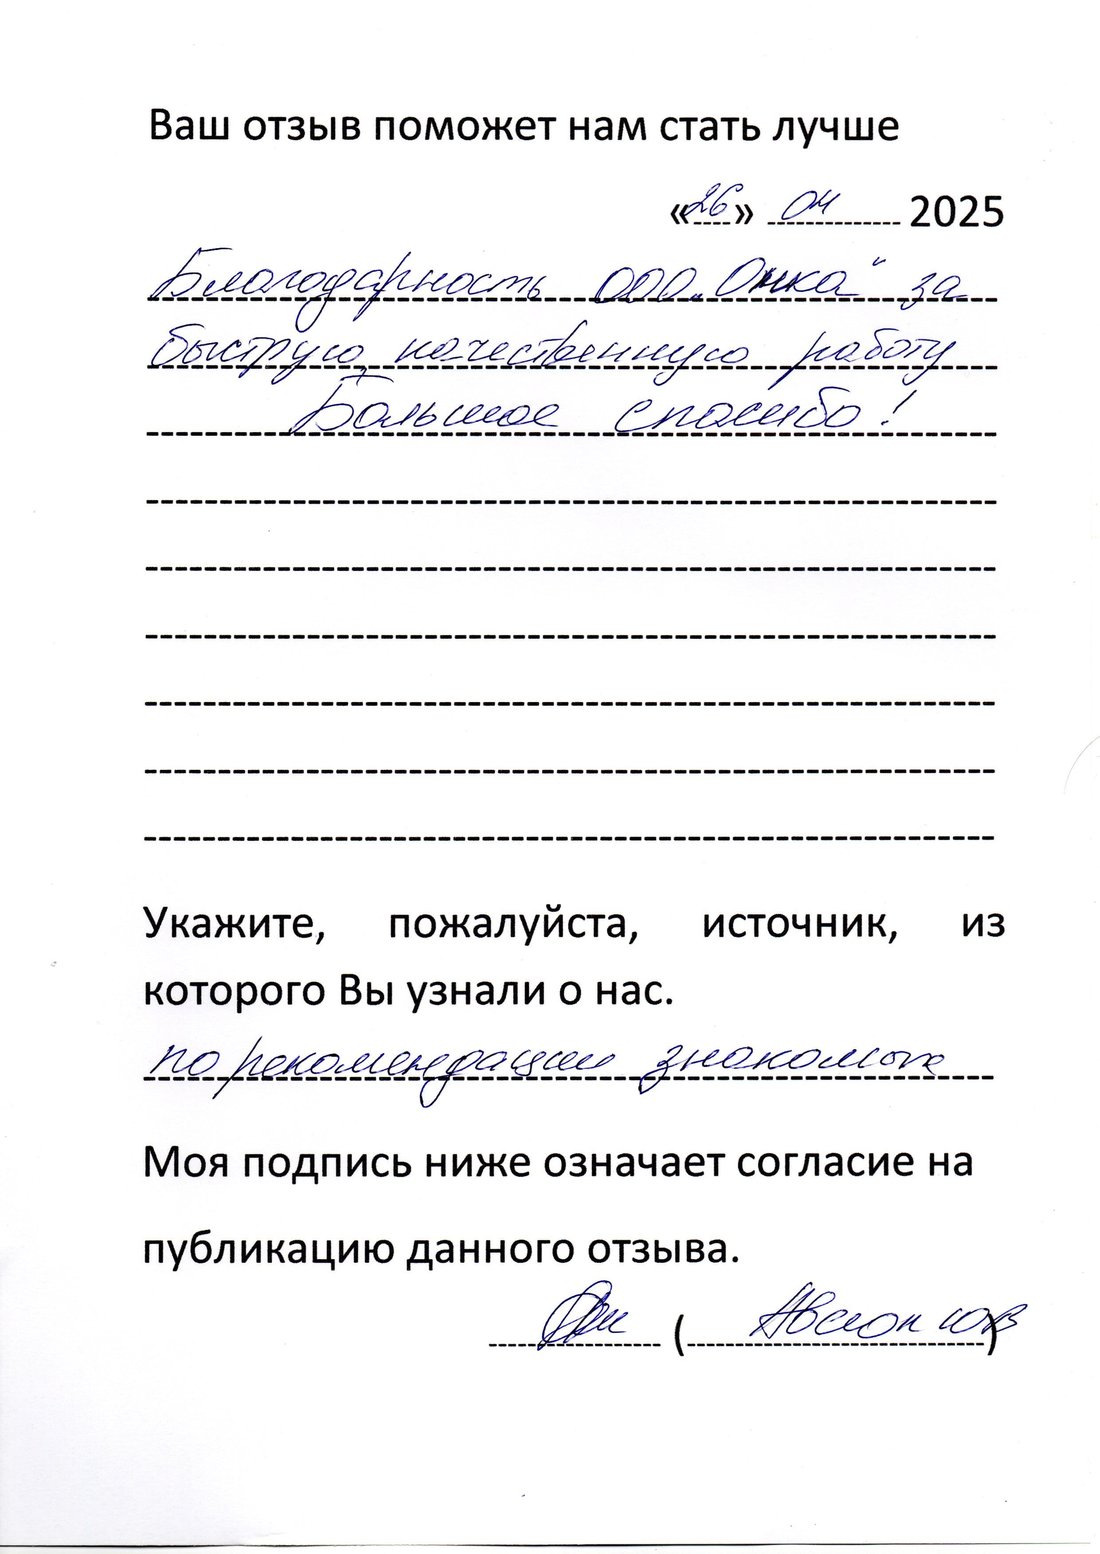 Ваш отзыв поможет нам стать лучше
«26» 04 2025
Благодарность ООО „Онка“ за
быструю, качественную работу
Большое спасибо!
Укажите, пожалуйста, источник, из
которого Вы узнали о нас.
по рекомендации знакомых
Моя подпись ниже означает согласие на
публикацию данного отзыва.
( )